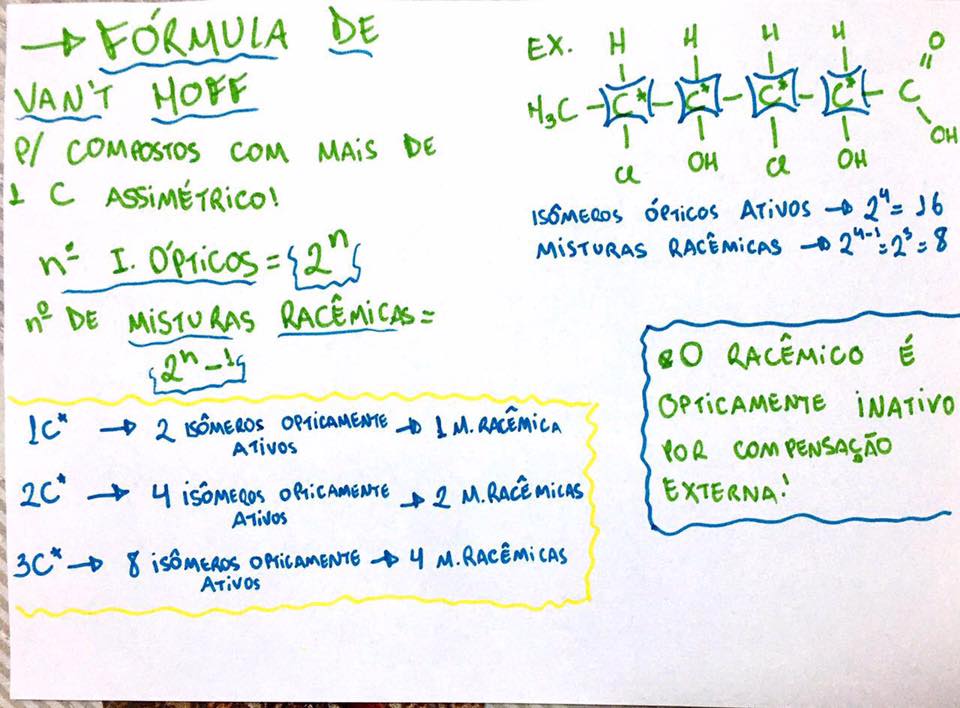 → FÓRMULA DE
VAN'T HOFF
P/ COMPOSTOS COM MAIS DE
1 C ASSIMÉTRICO!
nº I. ÓPTICOS = {2ⁿ}
nº DE MISTURAS RACÊMICAS =
{2ⁿ⁻¹}
1C* → 2 ISÔMEROS OPTICAMENTE ATIVOS → 1 M. RACÊMICA
2C* → 4 ISÔMEROS OPTICAMENTE ATIVOS → 2 M. RACÊMICAS
3C* → 8 ISÔMEROS OPTICAMENTE ATIVOS → 4 M. RACÊMICAS
EX. H H H H O
H₃C - C* - C* - C* - C* - C
Cl OH Cl OH OH
ISÔMEROS ÓPTICOS ATIVOS → 2⁴ = 16
MISTURAS RACÊMICAS → 2⁴⁻¹ = 2³ = 8
• O RACÊMICO É
OPTICAMENTE INATIVO
POR COMPENSAÇÃO
EXTERNA!